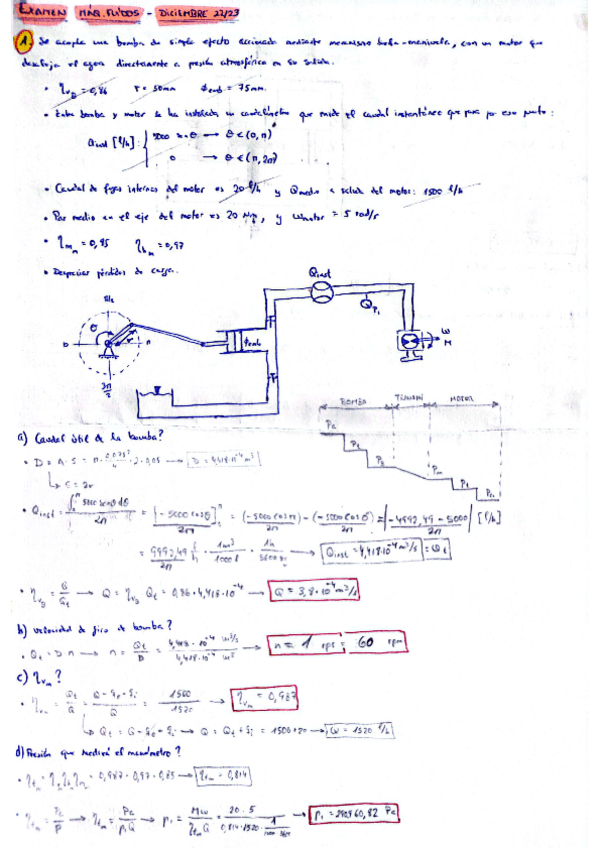 EXAMEN MÁQ. FLUIDOS - DICIEMBRE 22/23
1. Se acopla una bomba de simple efecto accionada mediante mecanismo biela-manivela, con un motor que
descarga el agua directamente a presión atmosférica en su salida.
• η_vB = 0,86 r = 50mm φemb. = 75mm.
• Entre bomba y motor se ha instalado un caudalímetro que mide el caudal instantáneo que pasa por ese punto:
Qinst [l/h]: { 5000 senθ → θ ∈ (0, π)
0 → θ ∈ (π, 2π)
• Caudal de fugas internas del motor es 20 l/h y Qmedio a salida del motor: 1500 l/h
• Par medio en el eje del motor es 20 Nm, y ωmotor = 5 rad/s
• η_mm = 0,85 η_hm = 0,97
• Despreciar pérdidas de carga.
Qinst
P1
θ
r
0
π
3π/2
φemb
ω
M
BOMBA TUBERÍA MOTOR
a) Caudal útil de la bomba?
• D = A · S = π · 0,075²/4 · 2 · 0,05 → D = 4,418·10⁻⁴ m³
↳ c = 2r
• Qinst = ∫ 5000 senθ dθ / 2π = [-5000 cosθ] / 2π = (-5000 cosπ) - (-5000 cos0) / 2π = |-4992,49 - 5000 / 2π| [l/h]
= 9992,49/2π l/h · 1m³/1000l · 1h/3600s → Qinst = 4,418·10⁻⁴ m³/s = Qt
• η_vB = Q/Qt → Q = η_vB Qt = 0,86 · 4,418·10⁻⁴ → Q = 3,8·10⁻⁴ m³/s
b) Velocidad de giro de bomba?
• Qt = D n → n = Qt/D = 4,418 · 10⁻⁴ m³/s / 4,418·10⁻⁴ m³ → n = 1 rps = 60 rpm
c) η_vm?
• η_vm = Qt/Q = Q - qe - qi / Q = 1500/1520 → η_vm = 0,987
↳ Qt = Q - qe - qi → Q = Qt + qi = 1500 + 20 → Q = 1520 l/h
d) Presión que medirá el manómetro?
• η_tm = η_v η_h η_m = 0,987 · 0,97 · 0,85 → η_tm = 0,814
• η_tm = Pe/P → η_tm = Pe/p1Q → p1 = Mω/η_tm Q = 20 · 5 / 0,814·1520· 1/1000·3600 → p1 = 290960,82 Pa